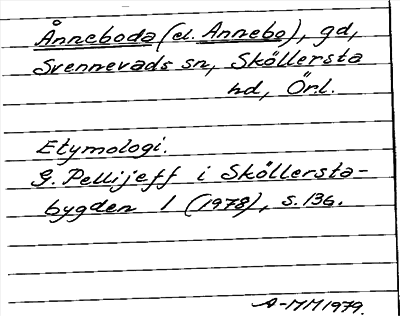 Ånneboda (el. Annebo), gd,
Svennevads sn, Sköllersta
hd, Örl.
Etymologi.
G. Pellijeff i Sköllersta-
bygden 1 (1978), s. 136.
A-MM1979.